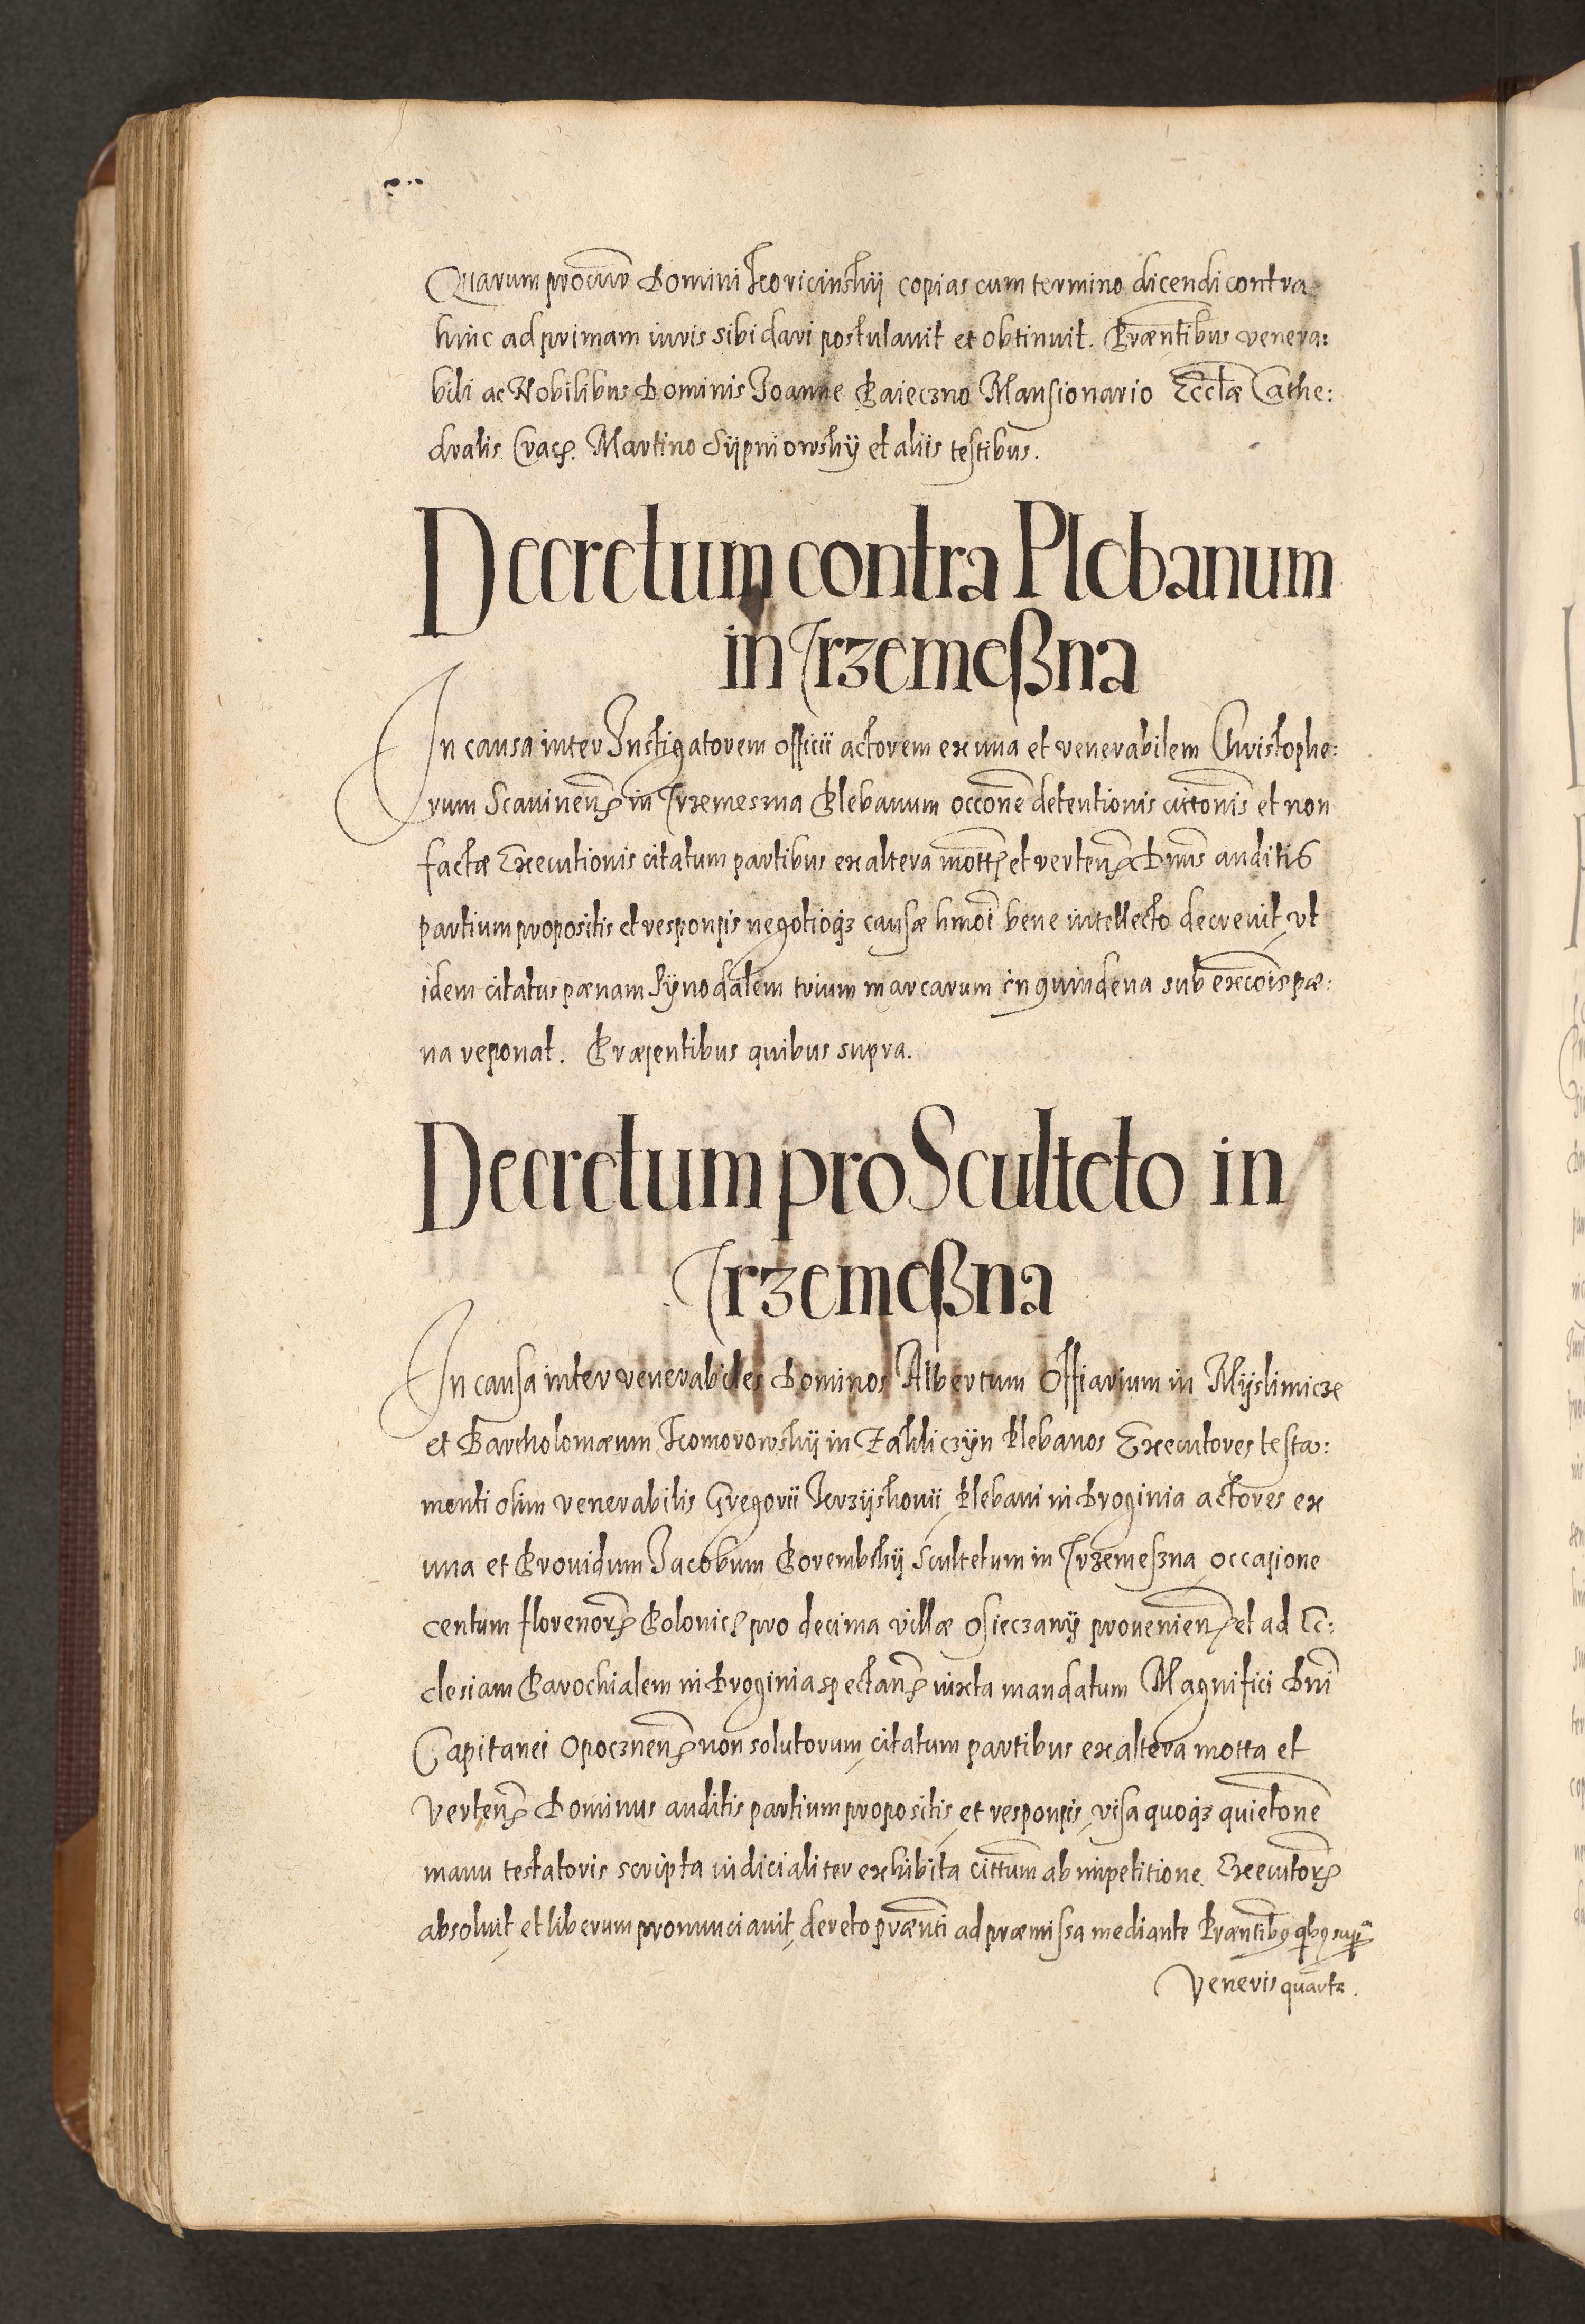 Quarum procur Domini Koricinskij copias cum termino dicendi contra
hinc ad primam iuris sibi dari postulavit et obtinuit. Præntibus venera:
bili ac Nobilibus Dominis Joanne Paieczno Mansionario Eccłæ Cathe:
dralis Crac. Martino Sÿpniowskÿ et aliis testibus.
Decretum contra Plebanum
in Trzemeßna
In causa inter Instigatorem officii actorem ex una et venerabilem Christophe:
rum Scavinen in Trzemeszna Plebanum occone detentionis cittonis et non
factæ Executionis citatum partibus ex altera mott et verten Dnus auditis
partium propositis et responsis negotioqз causæ hmoi bene intellecto decrevit, ut
idem citatus pænam Sÿnodalem trium marcarum in quindena sub exccois pæ:
na reponat. Præsentibus quibus supra.
Decretum pro Sculteto in
Trzemeßna
In causa inter venerabiles Dominos Albertum Offiarium in Mÿslimicze
et Bartholomæum Komorowskij in Zakliczÿn Plebanos Executores testa:
menti olim venerabilis Gregorii Krzÿskovii Plebani in Droginia actores ex
una et Providum Jacobum Porembskij Scultetum in Trzemeszna occasione
centum florenor Polonic pro decima villæ Osieczanÿ provenien et ad Ec:
clesiam Parochialem in Droginia spectan iuxta mandatum Magnifici Dni
Capitanei Opocznen non solutorum, citatum partibus ex altera motta et
verten Dominus auditis partium propositis, et responsis, visa quoqз quietone
manu testatoris scripta iudicialiter exhibita cittum ab impetitione Executor
absolvit, et liberum pronunciavit, dereto prænti ad præmissa mediante Præntibus qbus supra
Veneris quarta.